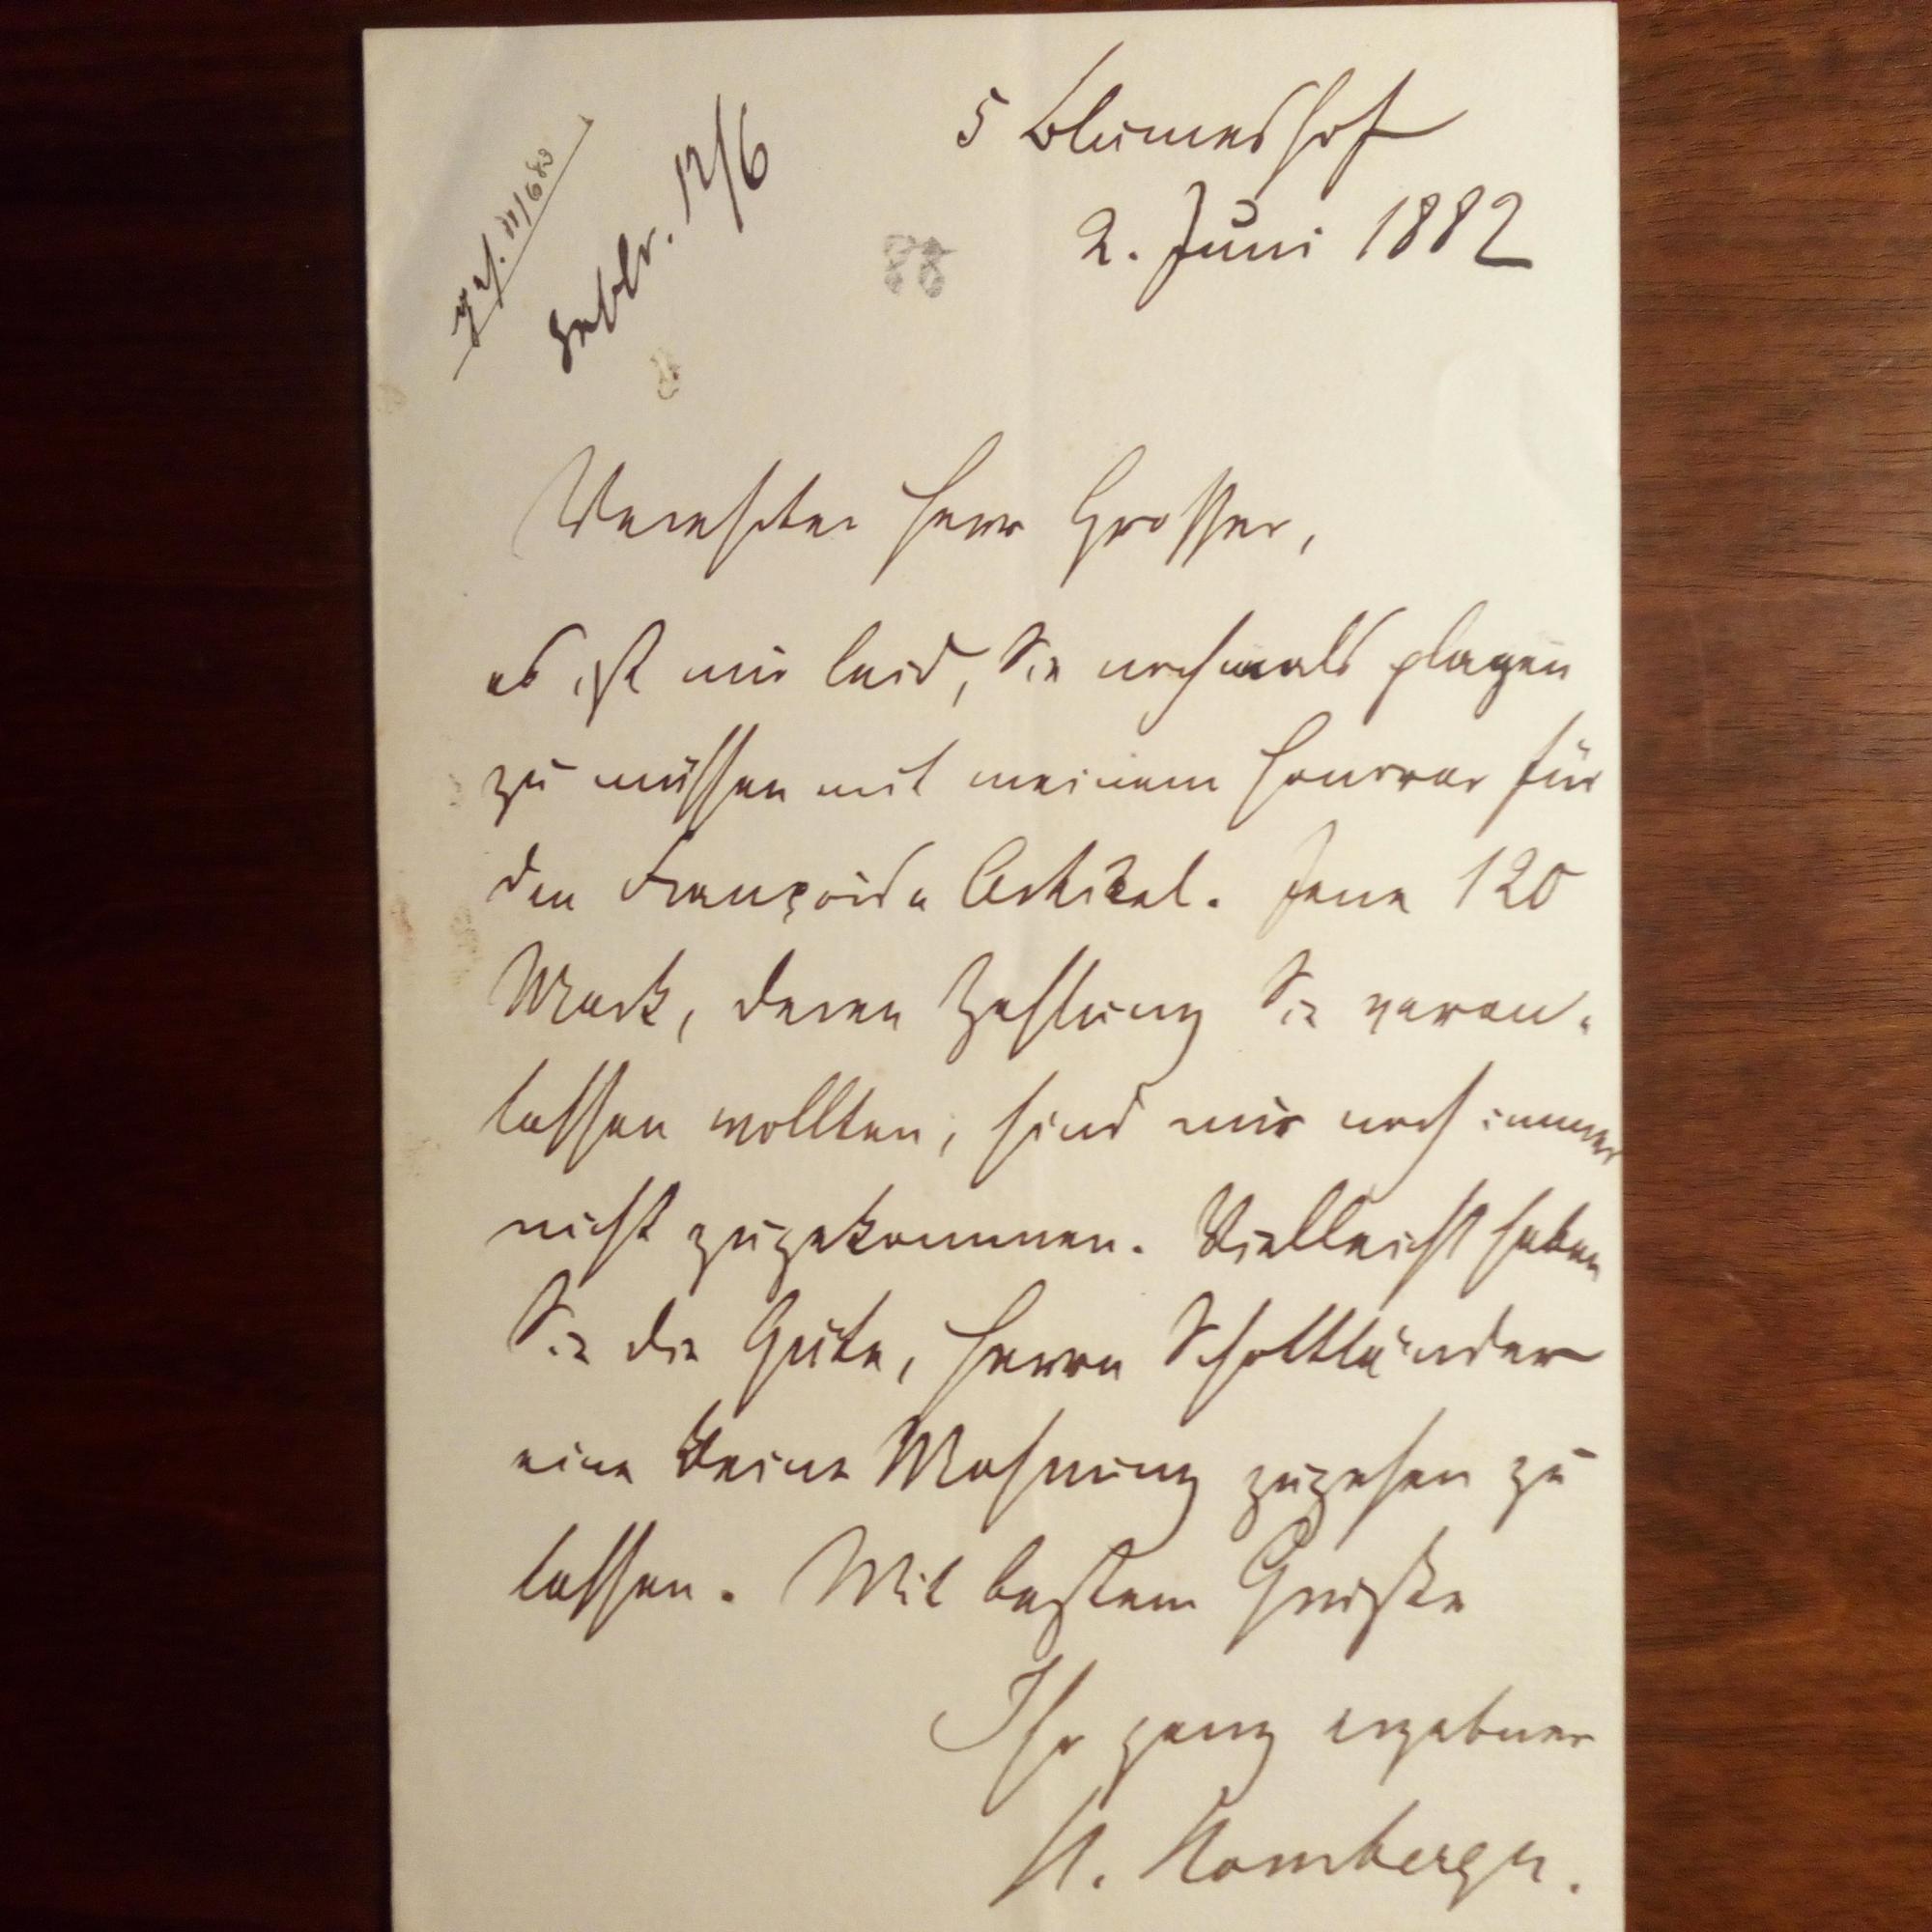 5 Blumeshof
2. Juni 1882
88
Verehrter Herr Grosser,
es ist mir leid, Sie nochmals plagen
zu müssen mit meinem Honorar für
den Françoise Artikel. Jene 120
Mark, deren Zahlung Sie veran-
lassen wollten, sind mir noch immer
nicht zugekommen. Vielleicht haben
Sie die Güte, Herrn Schottländer
eine kleine Mahnung zugehen zu
lassen. Mit bestem Gruße
Ihr ganz ergebner
H. Homberger.